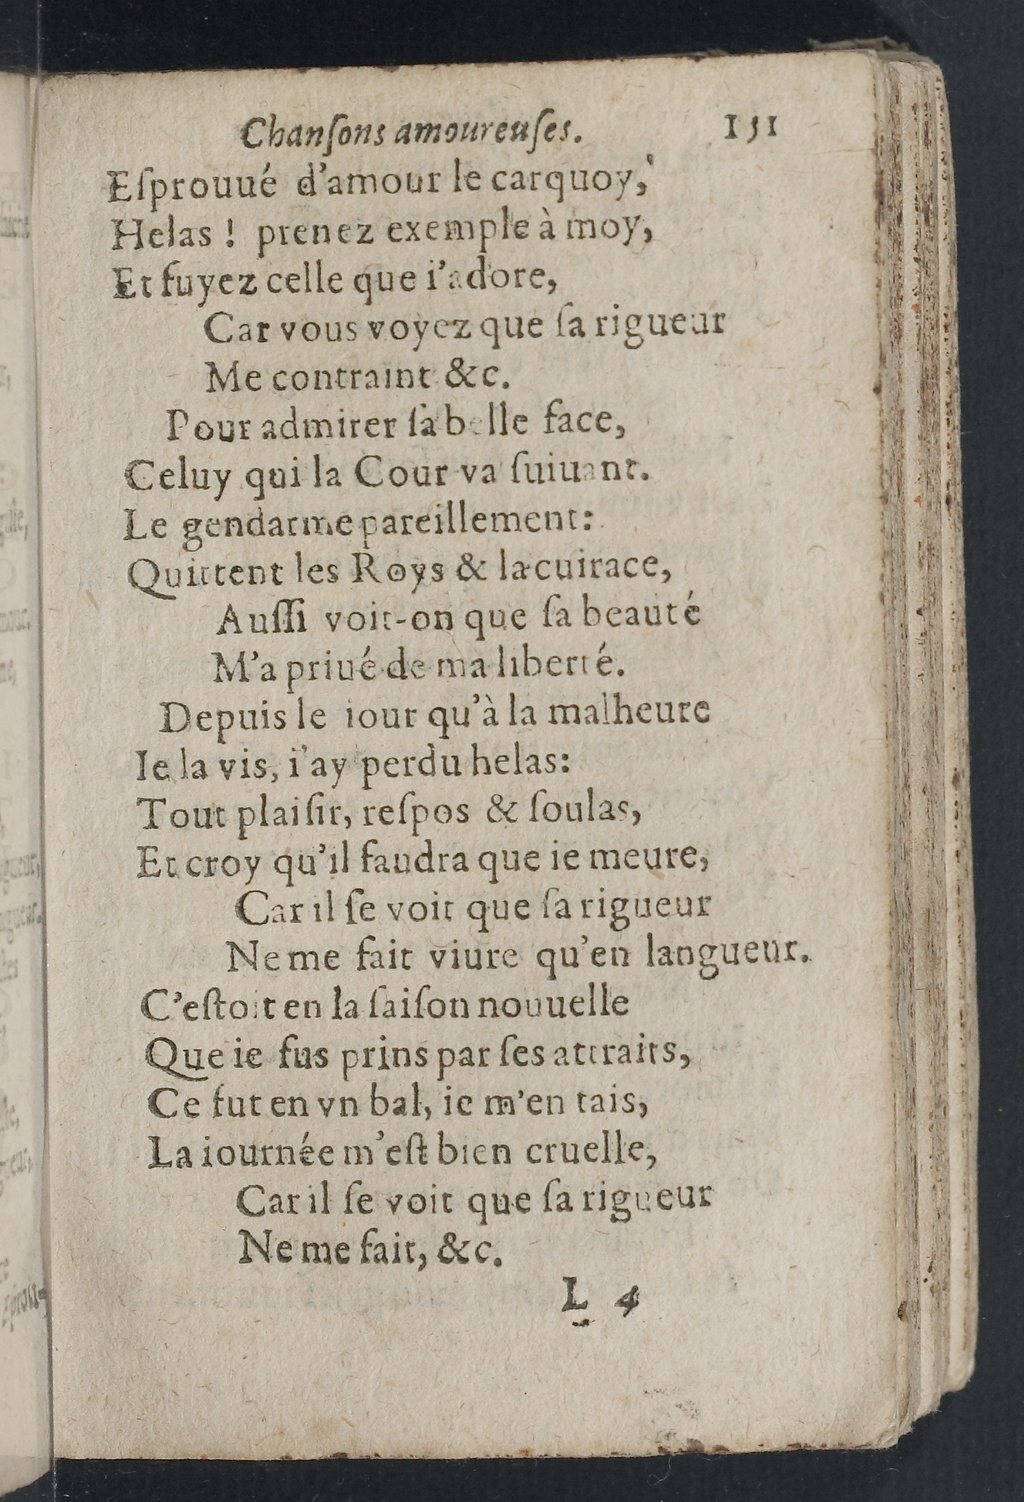 Chanſons amoureuſes. 151
Eſprouué d'amour le carquoy,
Helas ! prenez exemple à moy,
Et fuyez celle que i'adore,
Car vous voyez que ſa rigueur
Me contraint &c.
Pour admirer ſa belle face,
Celuy qui la Cour va ſuiuant.
Le gendarme pareillement:
Quittent les Roys & la cuirace,
Auſſi voit-on que ſa beauté
M'a priué de ma liberté.
Depuis le iour qu'à la malheure
Ie la vis, i'ay perdu helas:
Tout plaiſir, reſpos & ſoulas,
Et croy qu'il faudra que ie meure,
Car il ſe voit que ſa rigueur
Ne me fait viure qu'en langueur.
C'eſtoit en la ſaiſon nouuelle
Que ie fus prins par ſes attraits,
Ce fut en vn bal, ie m'en tais,
La iournée m'eſt bien cruelle,
Car il ſe voit que ſa rigueur
Ne me fait, &c.
L 4